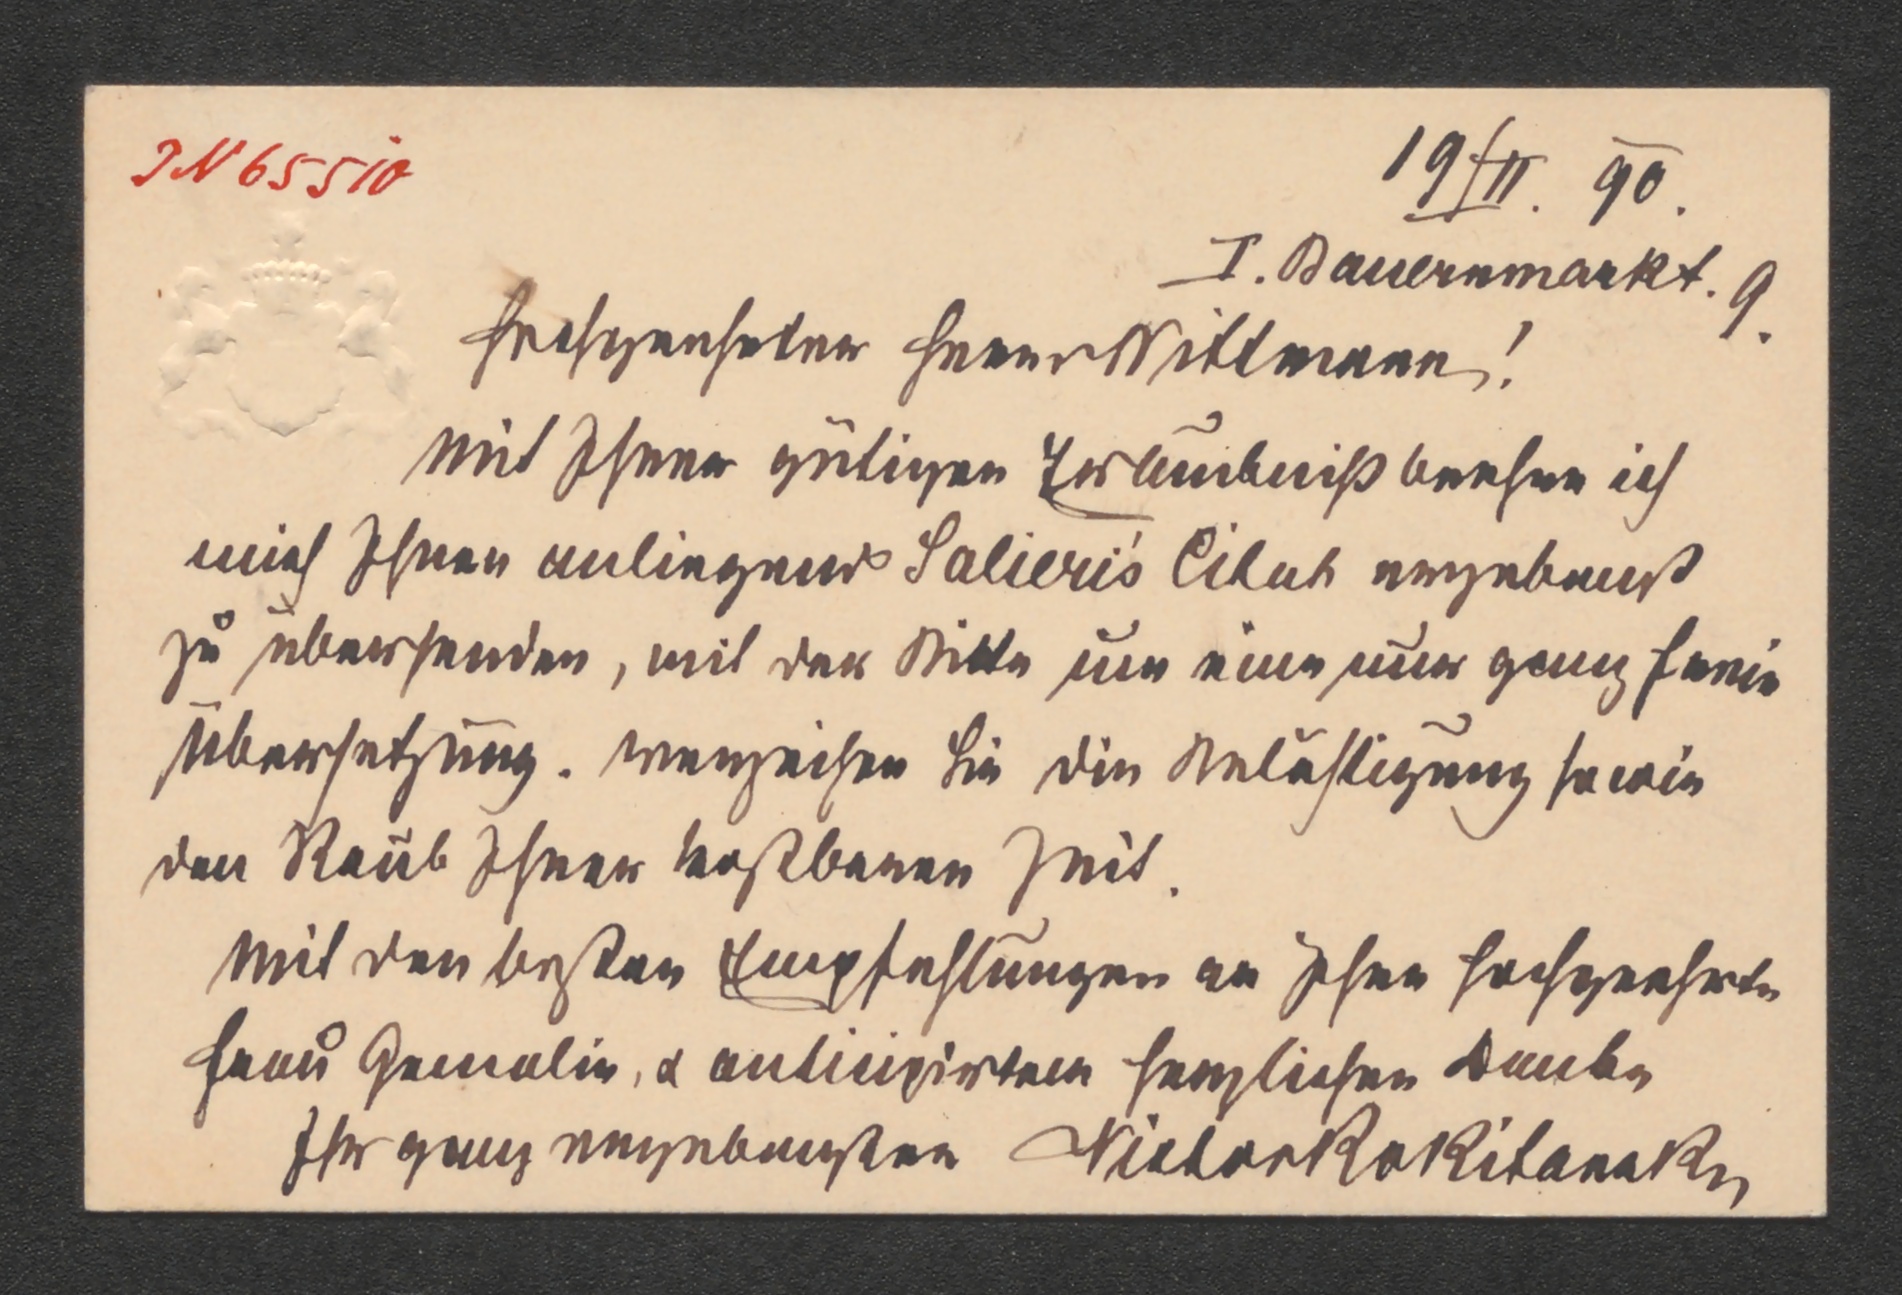 IN 65510
19/II. 90.
I. Bauernmarkt. 9.
Hochgeehrter Herr Wittmann!
Mit Ihrer gütigen Erlaubniß beehre ich
mich Ihnen anliegend Salieri's Citat ergebenst
zu übersenden, mit der Bitte um eine nur ganz freie
Übersetzung. Verzeihen Sie die Belästigung sowie
den Raub Ihrer kostbaren Zeit.
Mit den besten Empfehlungen an Ihre hochgeehrte
Frau Gemalin, & anticipirtem herzlichen Danke
Ihr ganz ergebenster Victor Rokitansky